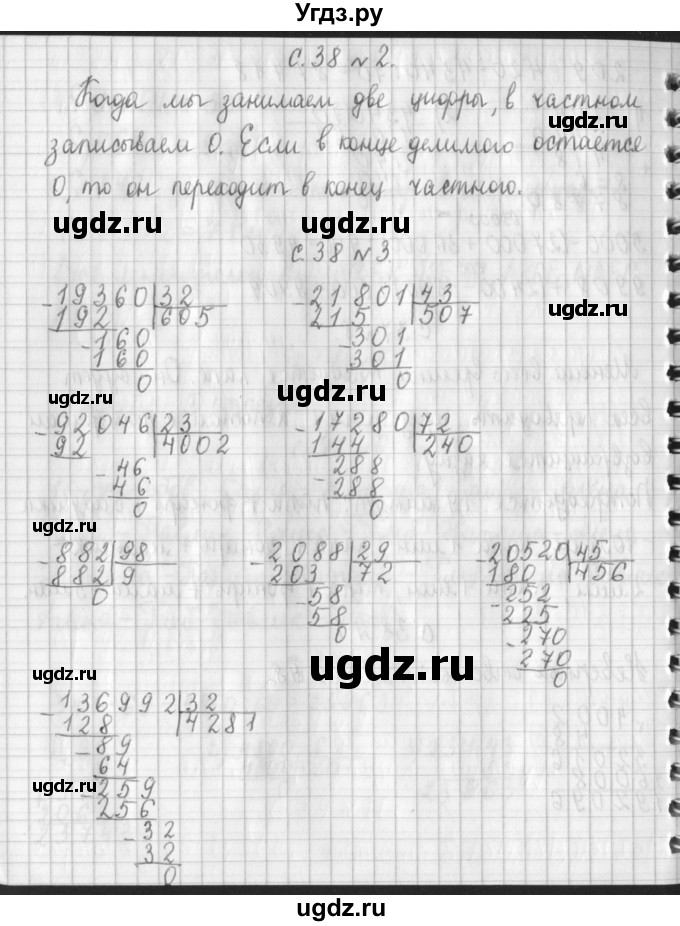 Угдз.ру
с. 38 № 2.
Когда мы занимаем две цифры, в частном
ugdz.ru
записываем 0. Если в конце делимого остаётся
0, то он переходит в конец частного.
ugdz.ru
ugdz.ru
с. 38 № 3
-19360|32
192 |605
-160
160
0
-21801|43
215 |507
-301
301
0
ugdz.ru
ugdz.ru
ugdz.ru
-92046|23
92 |4002
-46
46
0
-17280|72
144 |240
-288
288
0
ugdz.ru
ugdz.ru
-882|98
882|9
0
-2088|29
203 |72
-58
58
0
-20520|45
180 |456
-252
225
-270
270
0
ugdz.ru
ugdz.ru
-136992|32
128 |4281
-89
64
-259
256
-32
32
0
ugdz.ru
ugdz.ru
ugdz.ru